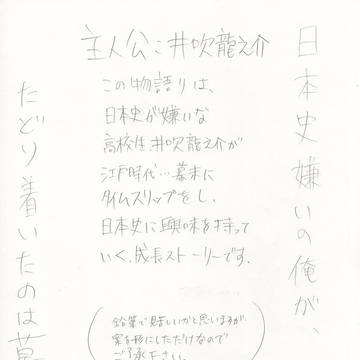 日本史嫌いの俺が、
主人公:井吹龍之介
この物語りは、
日本史が嫌いな
高校生井吹龍之介が
江戸時代…幕末に
タイムスリップをし、
日本史に興味を持って
いく、成長ストーリーです。
鉛筆で見苦しいかと思いますが、
案を形にしただけなので
ご了承下さい。
たどり着いたのは幕